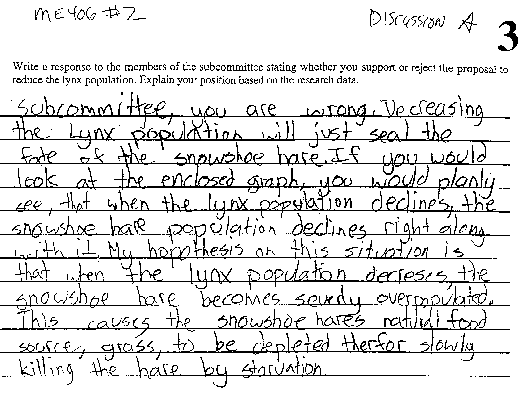 ME406 #2
Discussion A
3
Write a response to the members of the subcommittee stating whether you support or reject the proposal to
reduce the lynx population. Explain your position based on the research data.
Subcommittee, you are wrong. Decreasing
the Lynx population will just seal the
fate of the snowshoe hare. If you would
look at the enclosed graph, you would planly
see, that when the lynx population declines, the
snowshoe hare population declines right along
with it. My hopothesis on this situation is
that when the lynx population decreses, the
snowshoe hare becomes severly overpopulated.
This causes the snowshoe hares natural food
source, grass, to be depleted therfor slowly
killing the hare by starvation